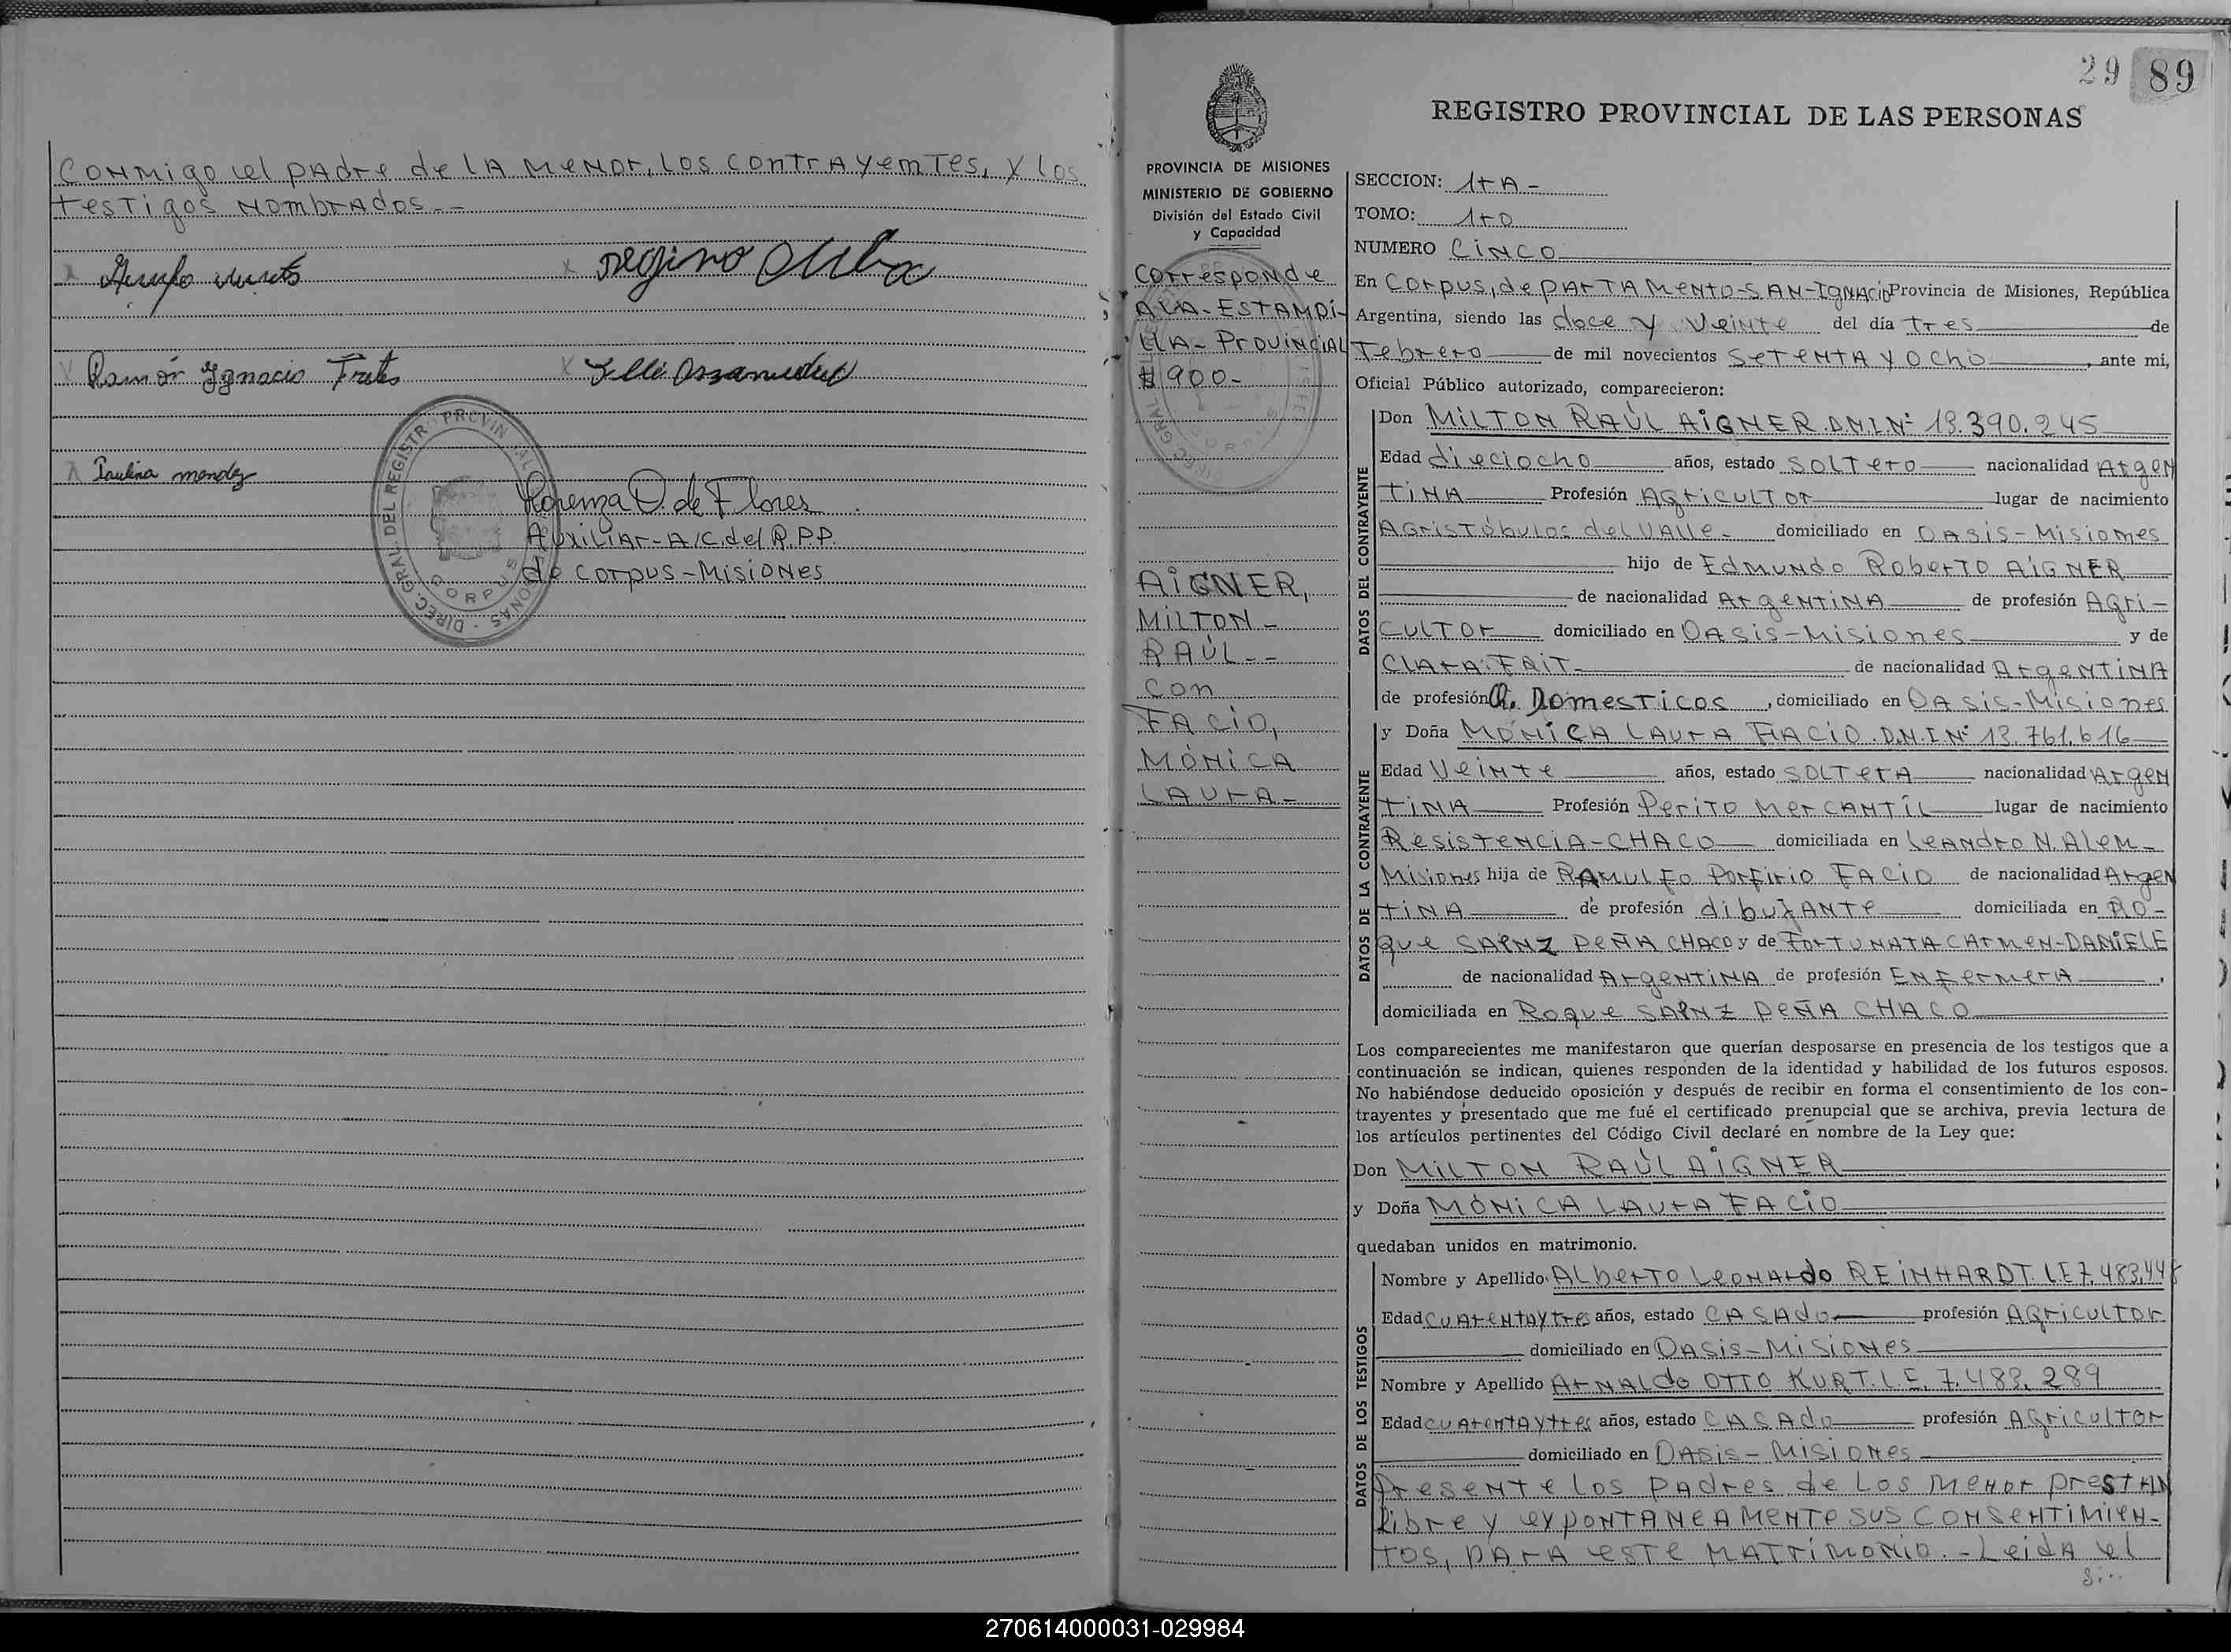 CONMigo el PAdre de lA MeNor, los contrAyentes, y los
testigos NombrAdos--
regino
Ramón Ygnacio
Paulina mendez
Lorenza O. de Flores
AuxiliAr-A/C.del R.P.P.
de Corpus-MisioNes
DIREC. GRAL. DEL REGISTRO PROVINCIAL
CORPUS
29 89
REGISTRO PROVINCIAL DE LAS PERSONAS
PROVINCIA DE MISIONES
MINISTERIO DE GOBIERNO
División del Estado Civil
y Capacidad
Corresponde
A LA-ESTAMPI-
LLA-PrOViNCiAL
$900-
AiGNER,
MiLTON-
RAÚL--
Con
FACiO,
MÓNiCA
LAUrA-
SECCION: 1rA-
TOMO: 1rO
NUMERO CiNCO
En Corpus, depArTAMeNtO-SAN-IgNAciO Provincia de Misiones, República
Argentina, siendo las doce y veinte del día tres de
Febrero de mil novecientos SeTeNTA y Ocho, ante mi,
Oficial Público autorizado, comparecieron:
DATOS DEL CONTRAYENTE
Don MiLTON RAÚL AiGNER.D.N.I.Nº 13.390.245
Edad dieciocho años, estado SOLTerO nacionalidad ArgeN
TiNA Profesión AgricuLTOr lugar de nacimiento
AGrisTóbulos del VAlle- domiciliado en OAsis-Misiones
hijo de EdMUNdo RobertO AiGNER
de nacionalidad ArgeNTiNA de profesión Agri-
CULTOr domiciliado en OAsis-Misiones y de
ClArA FAiT- de nacionalidad ArgeNTiNA
de profesión Q. DomesTicos, domiciliado en OAsis-Misiones
DATOS DE LA CONTRAYENTE
y Doña MÓNiCA LAUrA FACiO.D.N.I.Nº 13.761.616
Edad VeiNte años, estado SOLTerA nacionalidad ArgeN
TiNA Profesión PeriTo MerCANTiL lugar de nacimiento
ResisTeNCiA-CHACO domiciliada en LeANdro N. AleM-
Misiones hija de RAMULFo Porfirio FACiO de nacionalidad ArgeN
TiNA de profesión dibujANTe domiciliada en RO-
que SAeNZ PeÑA CHACO y de FOrTUNATA CArMeN-DANiELE
de nacionalidad ArgeNTiNA de profesión ENFerMerA,
domiciliada en Roque SAeNZ PeÑA CHACO
Los comparecientes me manifestaron que querían desposarse en presencia de los testigos que a
continuación se indican, quienes responden de la identidad y habilidad de los futuros esposos.
No habiéndose deducido oposición y después de recibir en forma el consentimiento de los con-
trayentes y presentado que me fué el certificado prenupcial que se archiva, previa lectura de
los artículos pertinentes del Código Civil declaré en nombre de la Ley que:
Don MiLTON RAÚL AiGNER
y Doña MÓNiCA LAUrA FACiO
quedaban unidos en matrimonio.
DATOS DE LOS TESTIGOS
Nombre y Apellido ALberTO LeONArdo REiNHARDT. L.E 7.483.448
Edad cuAreNtAytres años, estado CASAdo profesión AgricuLTOr
domiciliado en OAsis-MisioNes
Nombre y Apellido ArNALdo OTTO KURT. L.E. 7.483.289
Edad cuAreNtAytres años, estado CASAdo profesión AgricuLTOr
domiciliado en OAsis-MisioNes
PreseNTe los PAdres de Los MeNor presTAN
libre y expoNTANeAMeNTe sus CoNseNTiMieN-
TOS, PArA esTe MATriMoNio.-LeidA el
Si..
270614000031-029984